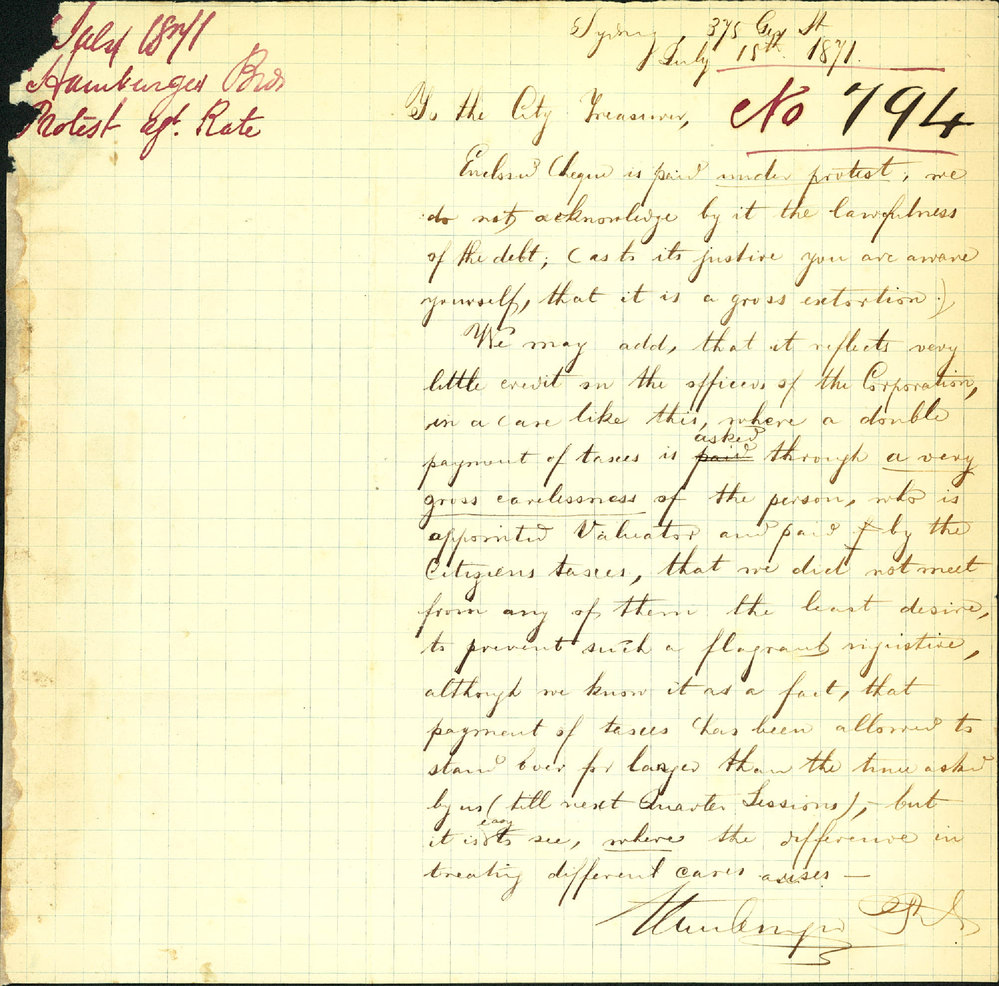 July 1871
Hamburger Bros
Protest agt. Rate
Sydney, 375 Geo St
July 15th 1871.
No 794
To the City Treasurer,
Enclosed Cheque is paid under protest, we
do not acknowledge by it the lawfulness
of the debt; (as to its justice you are aware
yourself, that it is a gross extortion.)
We may add, that it reflects very
little credit on the officers of the Corporation,
in a case like this, where a double
payment of taxes is paid asked through a very
gross carelessness of the person, who is
appointed Valuator and paid f by the
Citizens taxes, that we did not meet
from any of them the least desire,
to prevent such a flagrant injustice,
although we know it as a fact, that
payment of taxes has been allowed to
stand over for longer than the time asked
by us (till next Quarter Sessions), - but
it is easy to see, where the difference in
treating different cases arises —
Hamburger